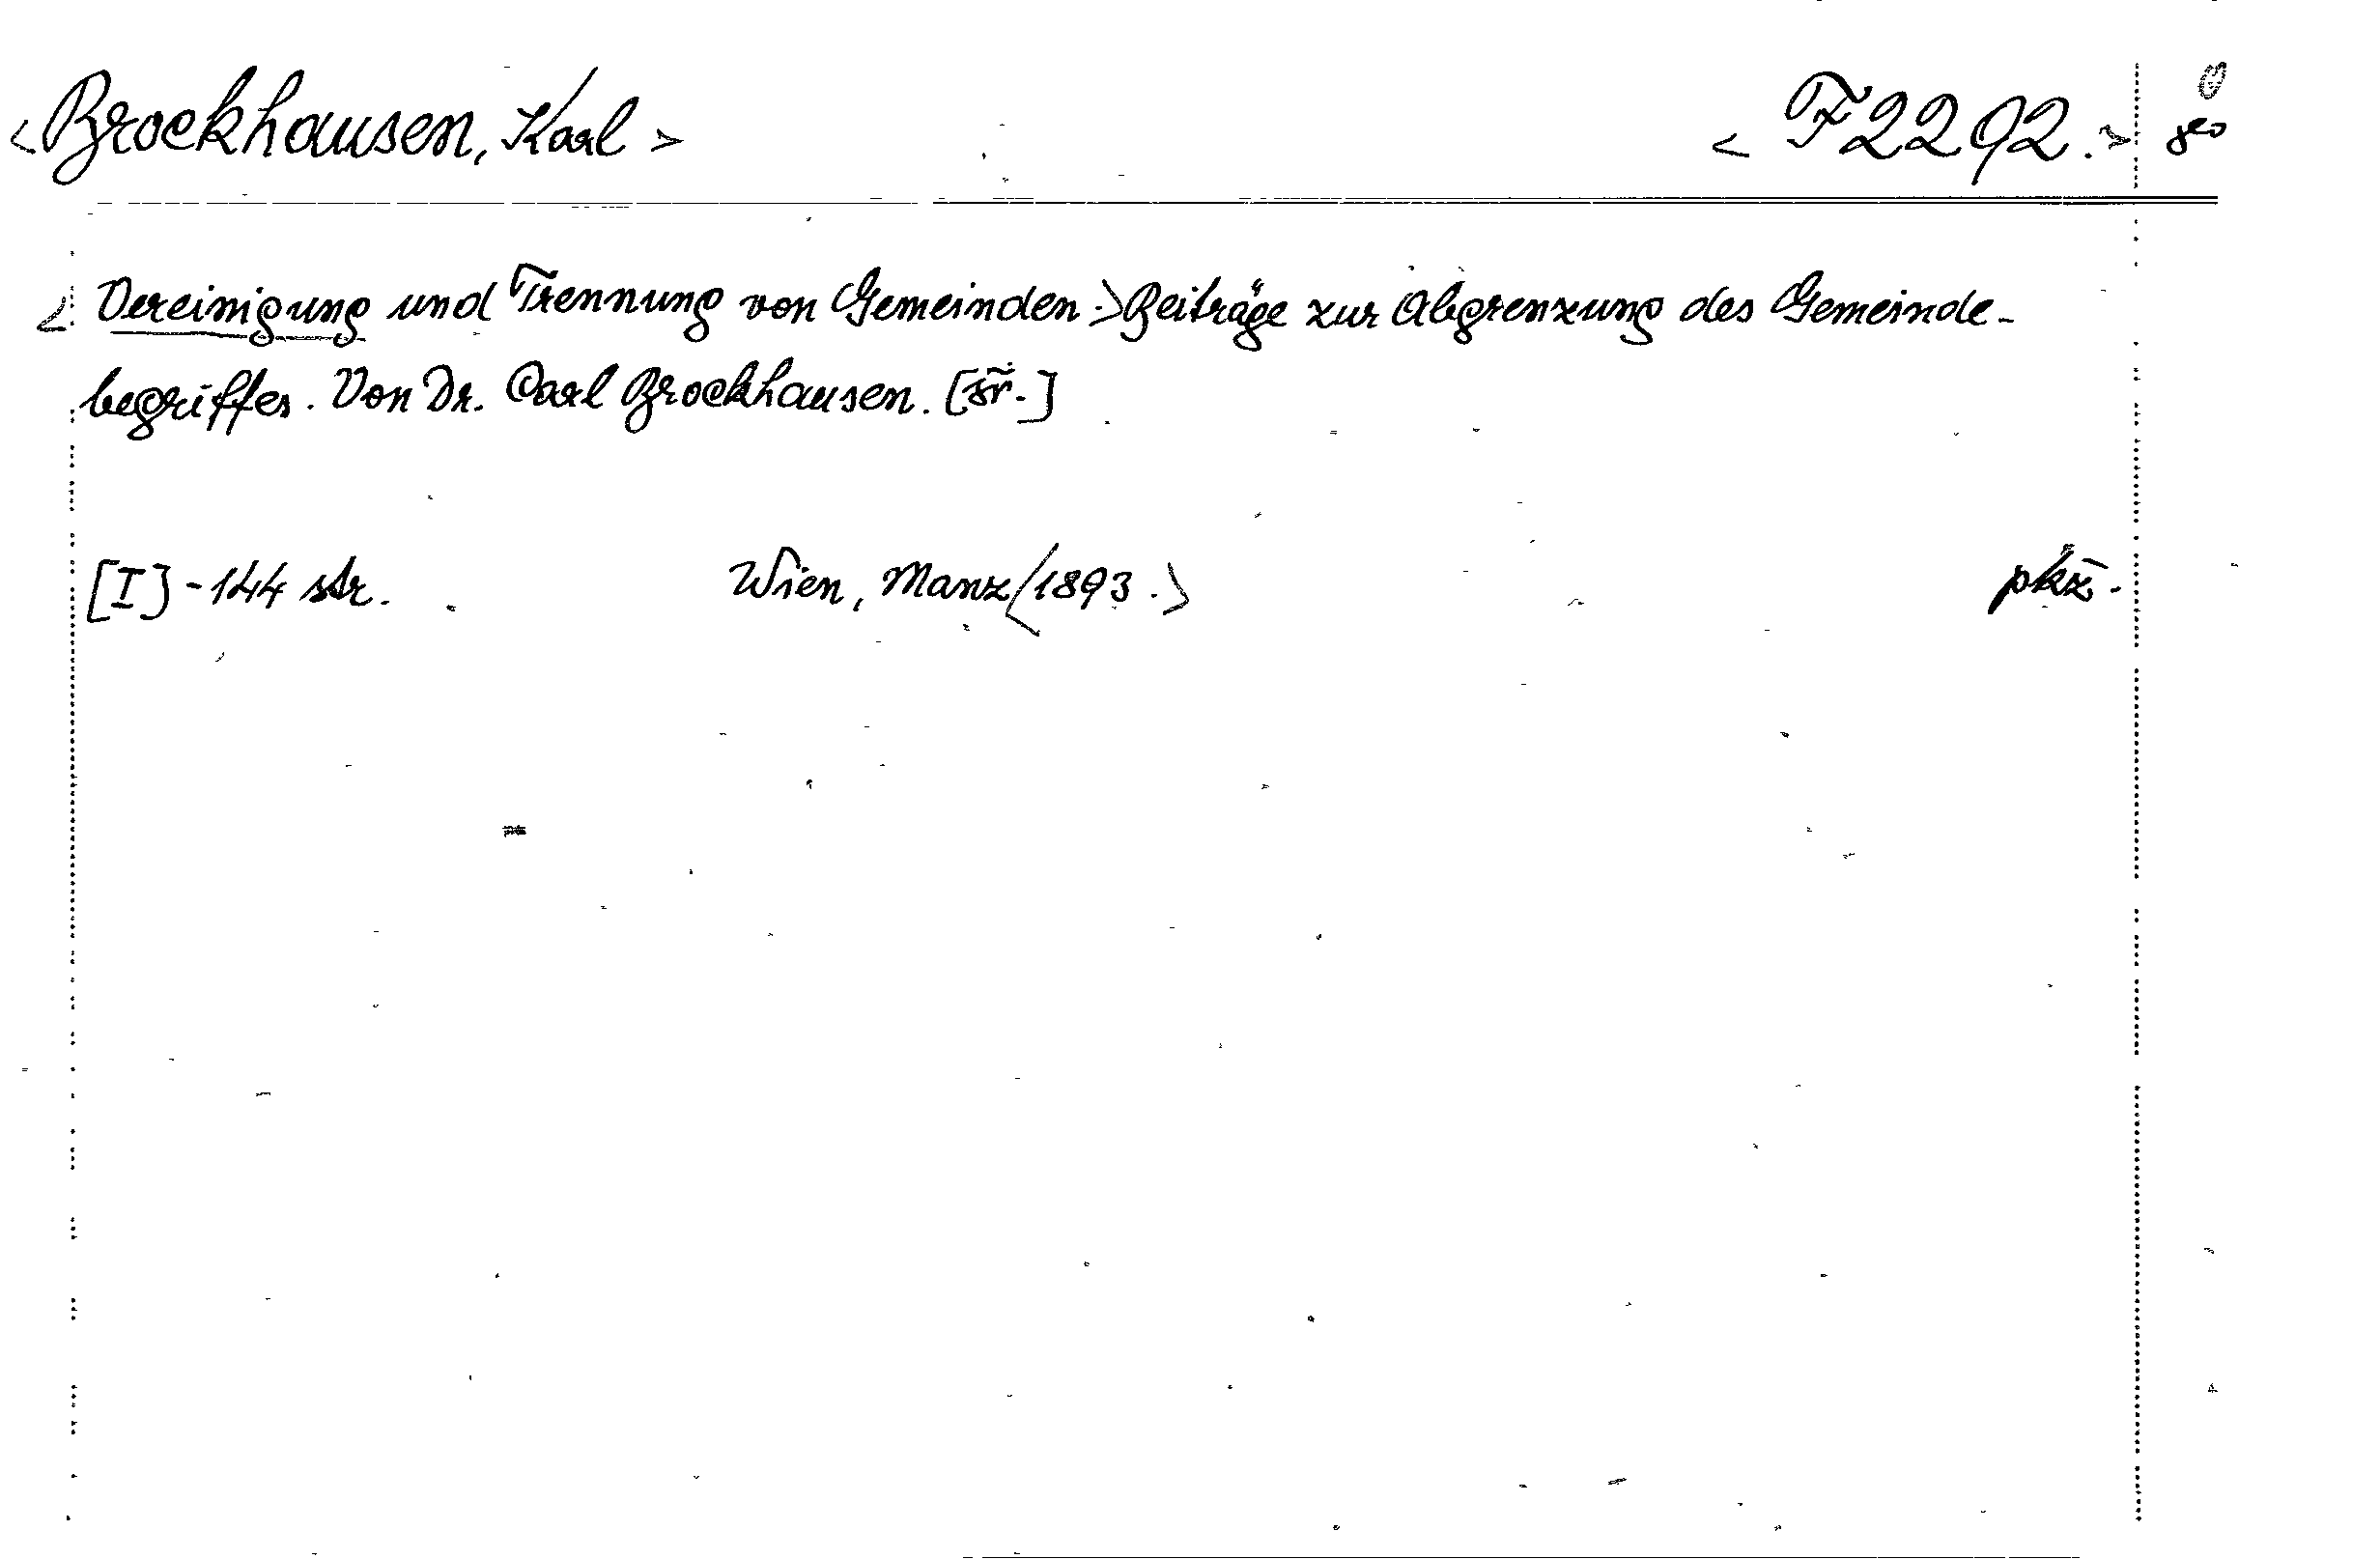 <Brockhausen, Karl> <F2292.>
<Vereinigung und Trennung von Gemeinden.>Beiträge zur Abgrenzung des Gemeinde-
begriffes. Von Dr. Carl Brockhausen. [šř.]
[I]-144 str. Wien, Manz <1893.> pkž.